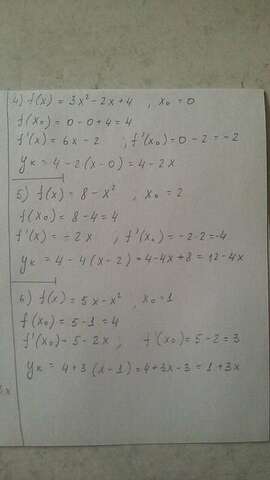 4) f(x) = 3x² - 2x + 4 , x₀ = 0
f(x₀) = 0 - 0 + 4 = 4
f'(x) = 6x - 2 ; f'(x₀) = 0 - 2 = -2
yк = 4 - 2(x - 0) = 4 - 2x
5) f(x) = 8 - x² , x₀ = 2
f(x₀) = 8 - 4 = 4
f'(x) = -2x ; f'(x₀) = -2·2 = -4
yк = 4 - 4(x - 2) = 4 - 4x + 8 = 12 - 4x
6) f(x) = 5x - x² , x₀ = 1
f(x₀) = 5 - 1 = 4
f'(x₀) = 5 - 2x ; f'(x₀) = 5 - 2 = 3
yк = 4 + 3(x - 1) = 4 + 3x - 3 = 1 + 3x